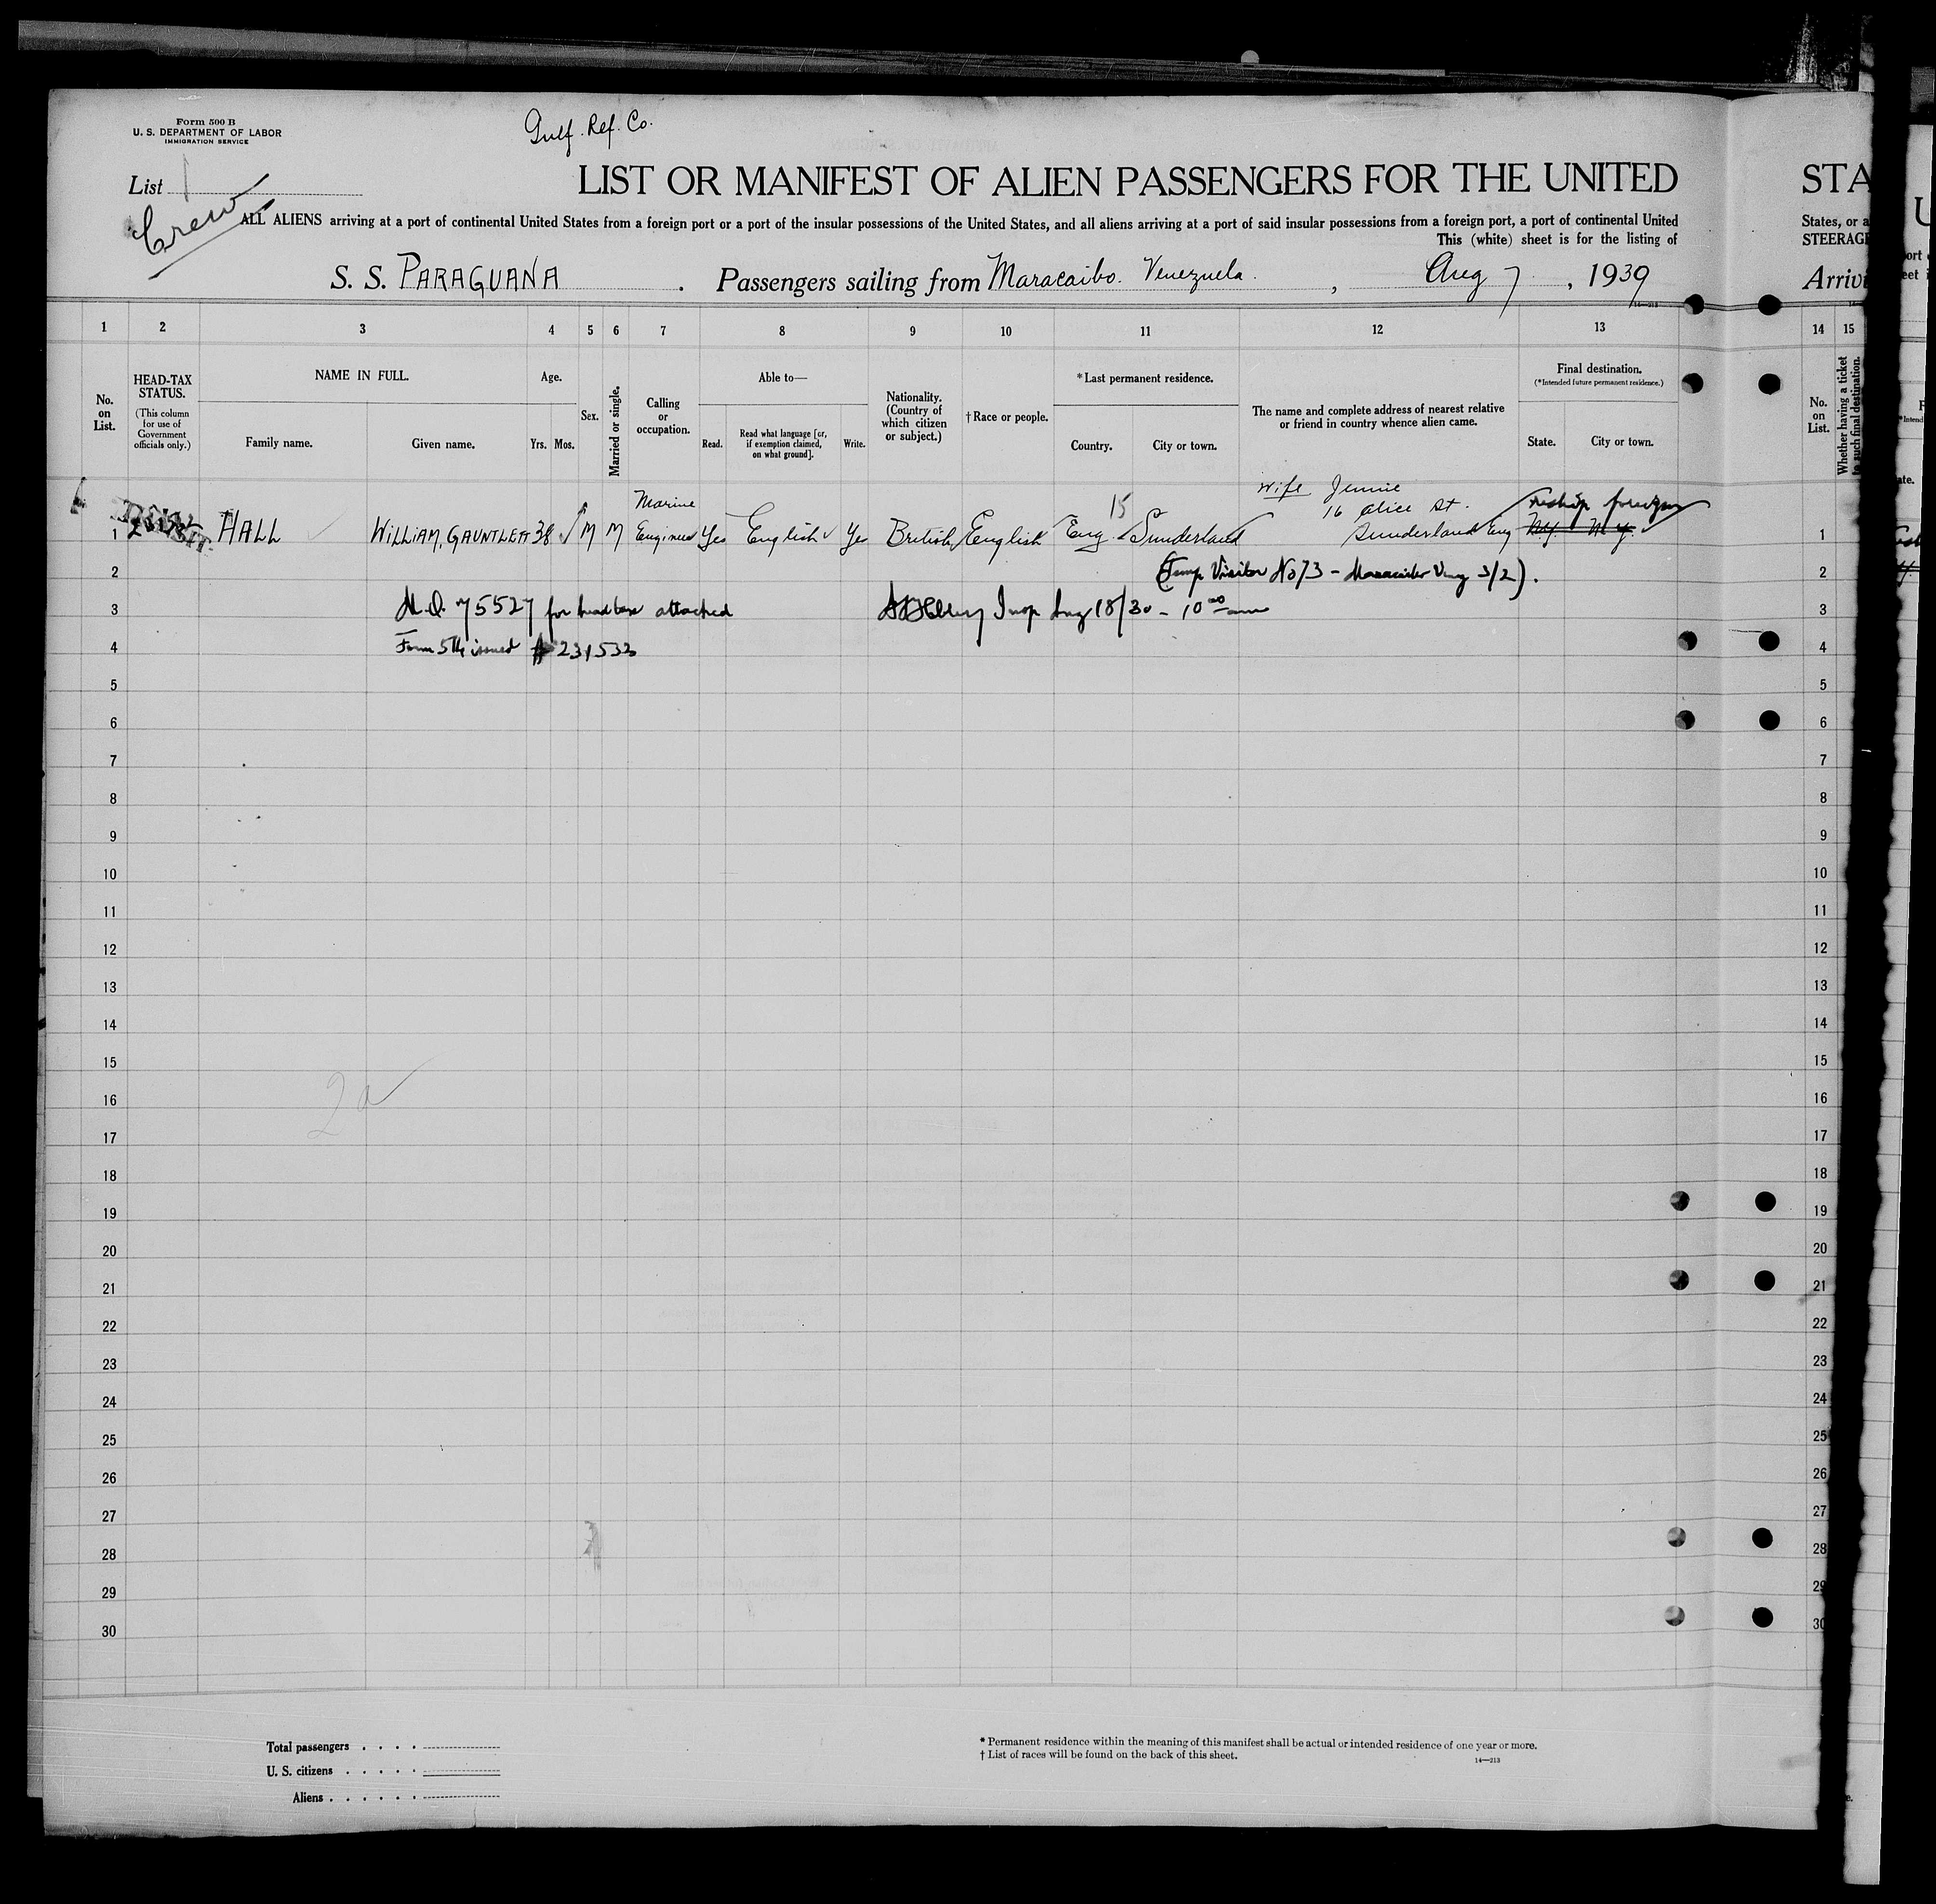 Form 500 B
U. S. DEPARTMENT OF LABOR
IMMIGRATION SERVICE
Gulf. Ref. Co.
List 1
Crew
LIST OR MANIFEST OF ALIEN PASSENGERS FOR THE UNITED
STA
ALL ALIENS arriving at a port of continental United States from a foreign port or a port of the insular possessions of the United States, and all aliens arriving at a port of said insular possessions from a foreign port, a port of continental United
States, or a
This (white) sheet is for the listing of
STEERAGE
S. S. PARAGUANA . Passengers sailing from Maracaibo. Venezuela. , Aug 7 , 1939
Arrivi
1 2 3 4 5 6 7 8 9 10 11 12 13 14 15
No. on List.
HEAD-TAX STATUS.
(This column for use of Government officials only.)
NAME IN FULL.
Family name.
Given name.
Age.
Yrs. Mos.
Sex.
Married or single.
Calling or occupation.
Able to—
Read.
Read what language [or, if exemption claimed, on what ground].
Write.
Nationality. (Country of which citizen or subject.)
† Race or people.
* Last permanent residence.
Country.
City or town.
The name and complete address of nearest relative or friend in country whence alien came.
Final destination.
(* Intended future permanent residence.)
State.
City or town.
No. on List.
Whether having a ticket to such final destination.
1 TRANSIT HALL WILLIAM, GAUNTLETT 38 M M Marine Engineer Yes English Yes British English Eng Sunderland 15 wife Jennie 16 Alice St. Sunderland Eng reship foreign N.Y. N.Y. 1
2 (Temp Visitor No 73 - 3/2). 2
3 75527 for head tax attached Insp Aug 18/30 - 10 00 am 3
4 Form 514 issued # 231533 4
5 5
6 6
7 7
8 8
9 9
10 10
11 11
12 12
13 13
14 14
15 15
16 2a 16
17 17
18 18
19 19
20 20
21 21
22 22
23 23
24 24
25 25
26 26
27 27
28 28
29 29
30 30
Total passengers . . . .
U. S. citizens . . . . .
Aliens . . . . . .
* Permanent residence within the meaning of this manifest shall be actual or intended residence of one year or more.
† List of races will be found on the back of this sheet.
14—213